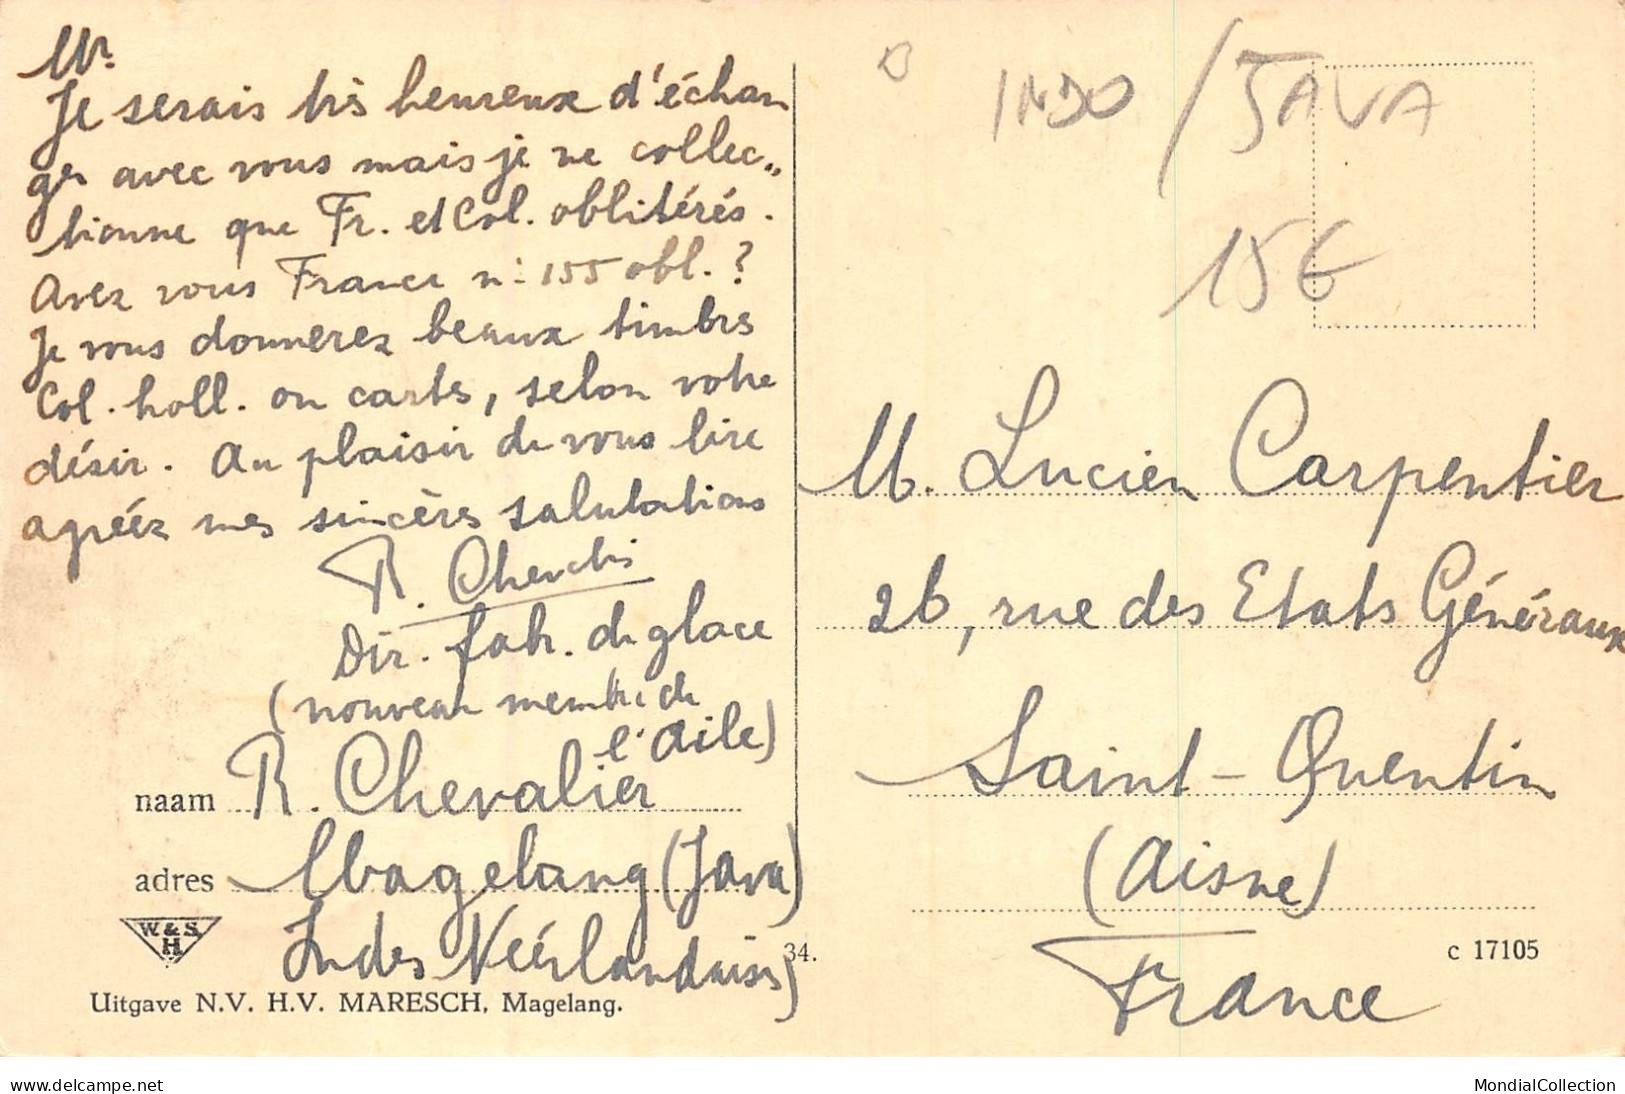 Mr.
Je serais très heureux d'échan
ger avec vous mais je ne collec„
tionne que Fr. et Col. oblitérés.
Avez vous France n: 155 obl.?
Je vous donnerez beaux timbres
Col. holl. ou cartes, selon votre
désir. Au plaisir de vous lire
agréez mes sincères salutations
R.
Dir. fabr. de glace
(nouveau membre de
l'Aile)
naam R. Chevalier
adres Magelang (Java)
Indes Néérlandaises)
W. & S.
H
34.
Uitgave N.V. H.V. MARESCH, Magelang.
INDO / JAVA
15€
M. Lucien Carpentier
26, rue des Etats Généraux
Saint-Quentin
(Aisne)
France
c 17105
delcampe.net
MondialCollection